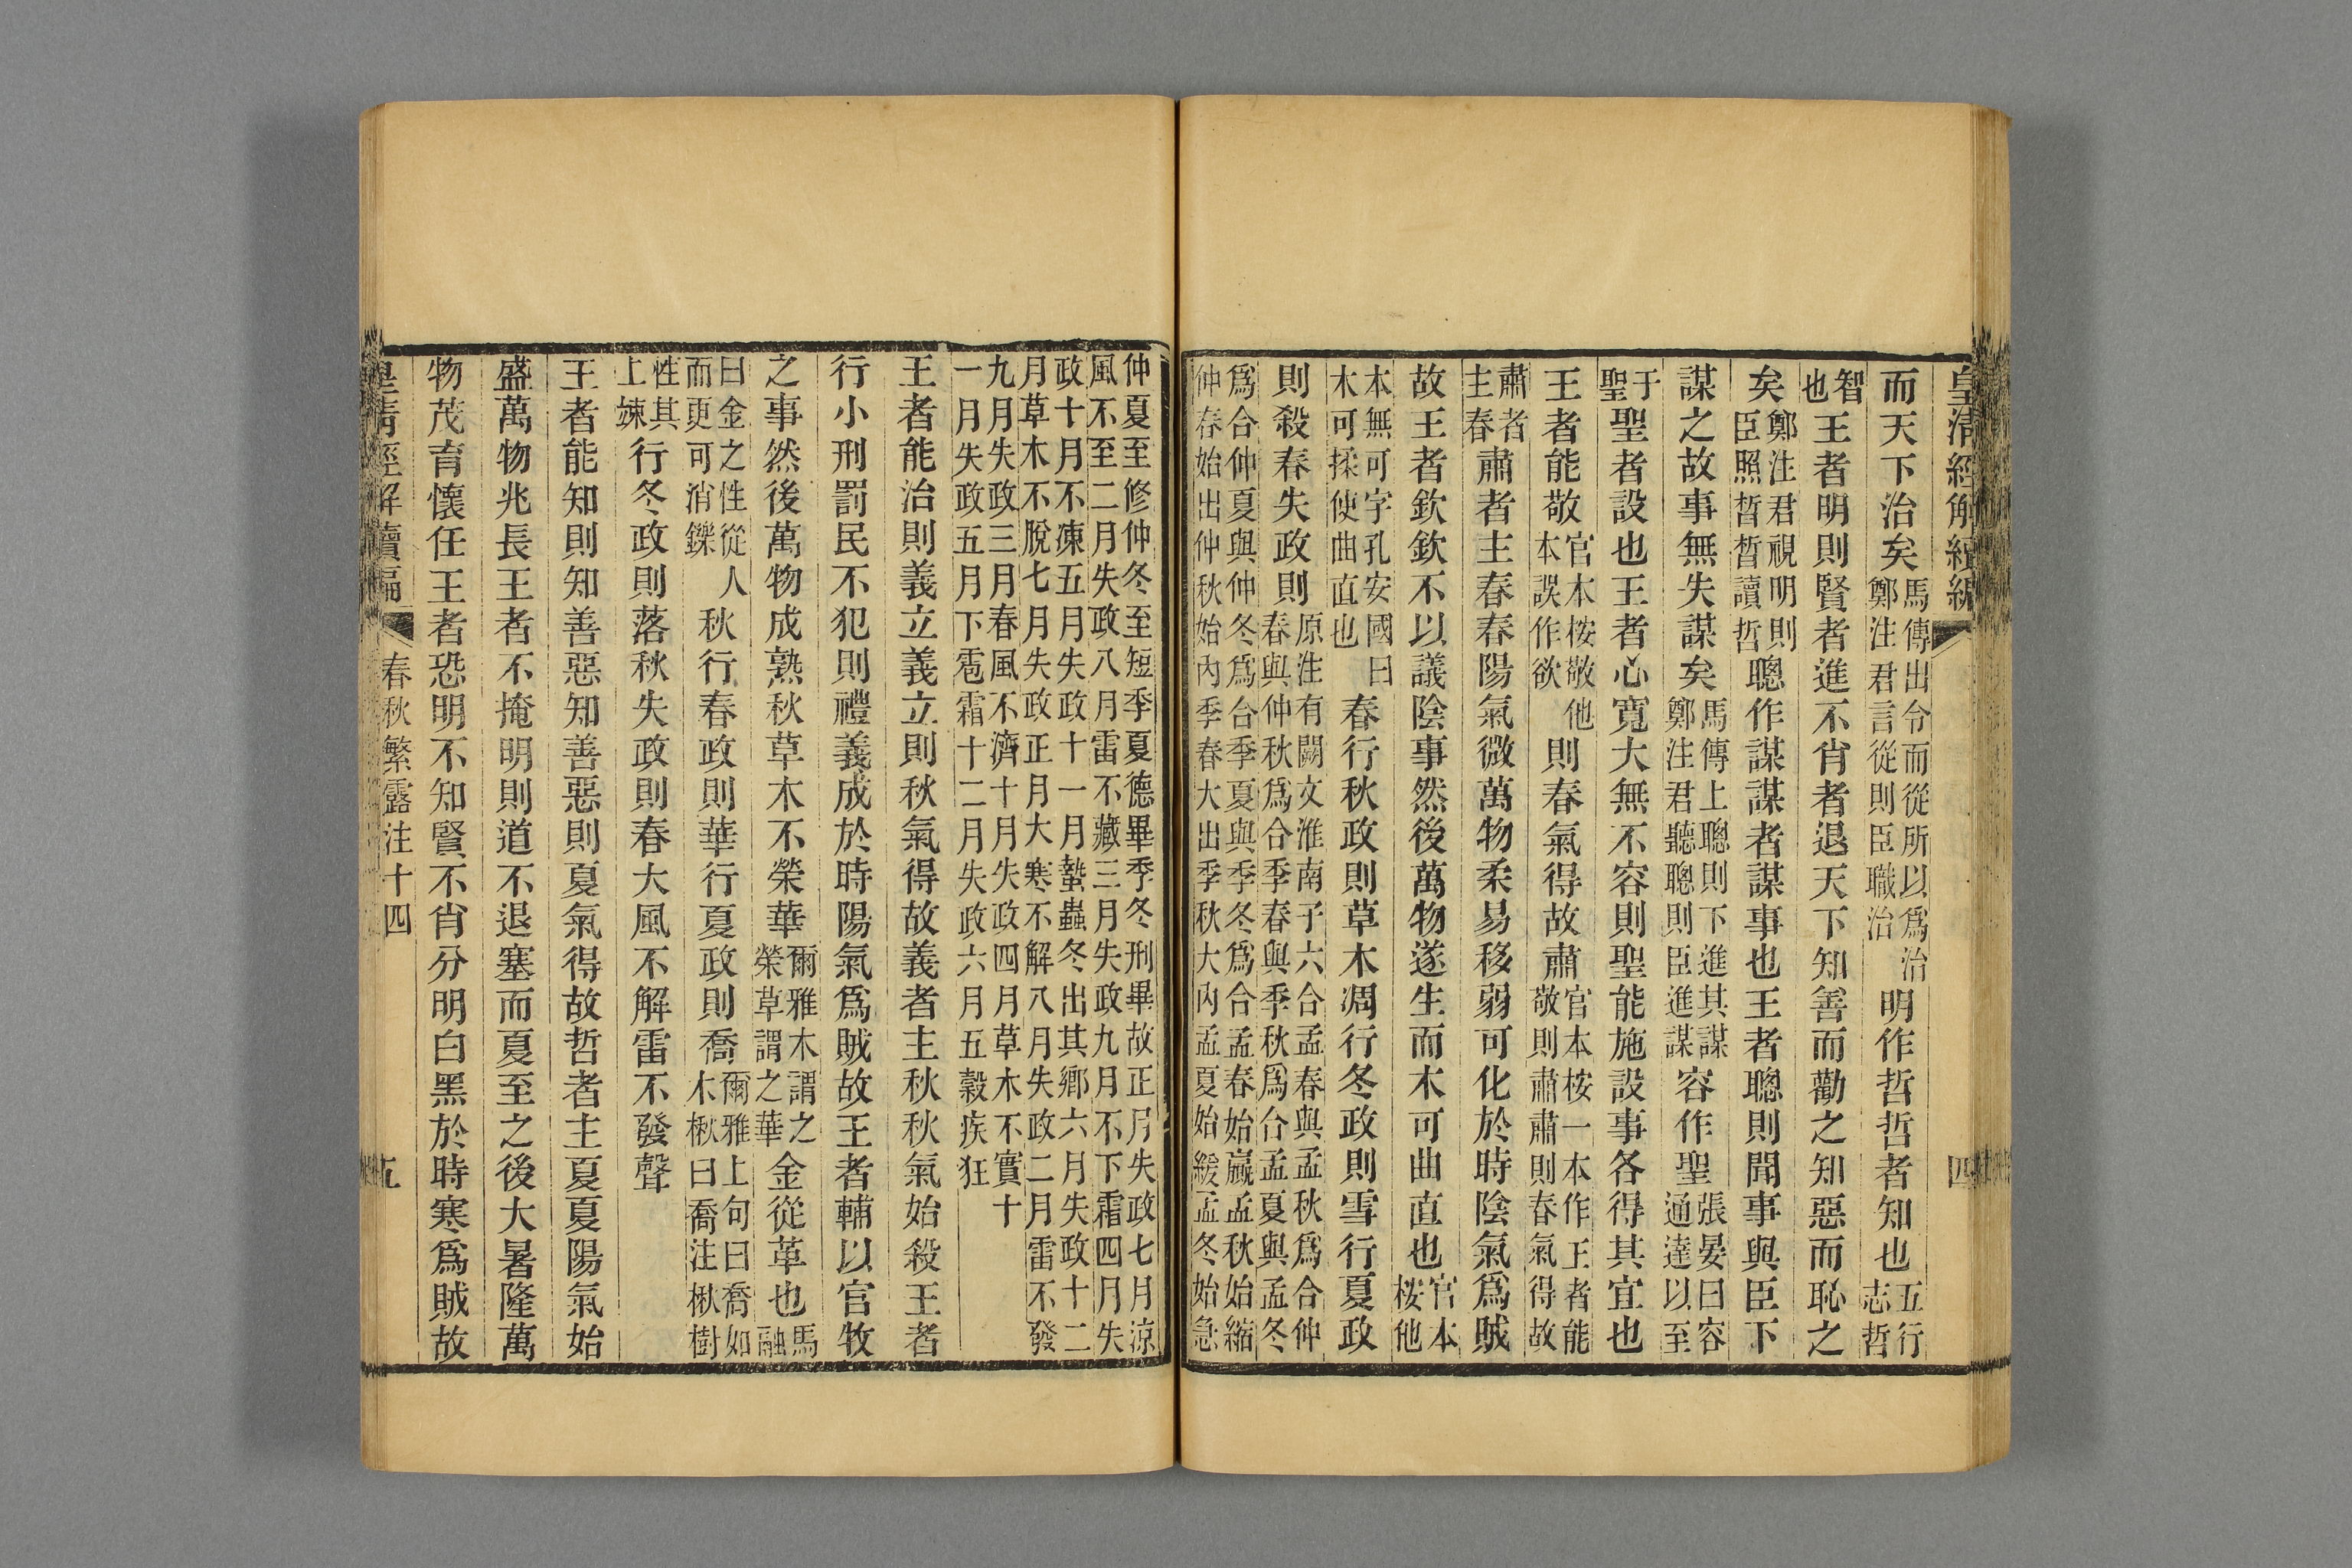 皇清經解續編 四
而天下治矣馬傳出令而從所以爲治鄭注君言從則臣職治明作哲哲者知也五行志哲
智也王者明則賢者進不肖者退天下知善而勸之知惡而恥之
矣鄭注君視明則臣照晢晢讀哲聰作謀謀者謀事也王者聰則聞事與臣下
謀之故事無失謀矣馬傳上聰則下進其謀鄭注君聽聰則臣進謀容作聖張晏曰容通達以至
于聖聖者設也王者心寬大無不容則聖能施設事各得其宜也
王者能敬官本桉敬他本誤作欲則春氣得故肅官本桉一本作王者能敬則肅肅則春氣得故
肅者主春肅者主春春陽氣微萬物柔易移弱可化於時陰氣爲賊
故王者欽欽不以議陰事然後萬物遂生而木可曲直也官本桉他
本無可字孔安國曰木可揉使曲直也春行秋政則草木凋行冬政則雪行夏政
則殺春失政則原注有闕文淮南子六合孟春與孟秋爲合仲春與仲秋爲合季春與季秋爲合孟夏與孟冬
爲合仲夏與仲冬爲合季夏與季冬爲合孟春始嬴孟秋始縮仲春始出仲秋始內季春大出季秋大內孟夏始緩孟冬始急
仲夏至修仲冬至短季夏德畢季冬刑畢故正月失政七月涼風不至二月失政八月雷不藏三月失政九月不下霜四月失
政十月不凍五月失政十一月蟄蟲冬出其鄉六月失政十二月草木不脫七月失政正月大寒不解八月失政二月雷不發
九月失政三月春風不濟十月失政四月草木不實十一月失政五月下雹霜十二月失政六月五穀疾狂
王者能治則義立義立則秋氣得故義者主秋秋氣始殺王者
行小刑罰民不犯則禮義成於時陽氣爲賊故王者輔以官牧
之事然後萬物成熟秋草木不榮華爾雅木謂之華草謂之榮金從革也馬融
曰金之性從人而更可消鑠秋行春政則華行夏政則喬爾雅上句曰喬如木楸曰喬注楸樹
性其上竦行冬政則落秋失政則春大風不解雷不發聲
王者能知則知善惡知善惡則夏氣得故哲者主夏夏陽氣始
盛萬物兆長王者不掩明則道不退塞而夏至之後大暑隆萬
物茂育懷任王者恐明不知賢不肖分明白黑於時寒爲賊故
皇清經解續編 春秋繁露注十四 五